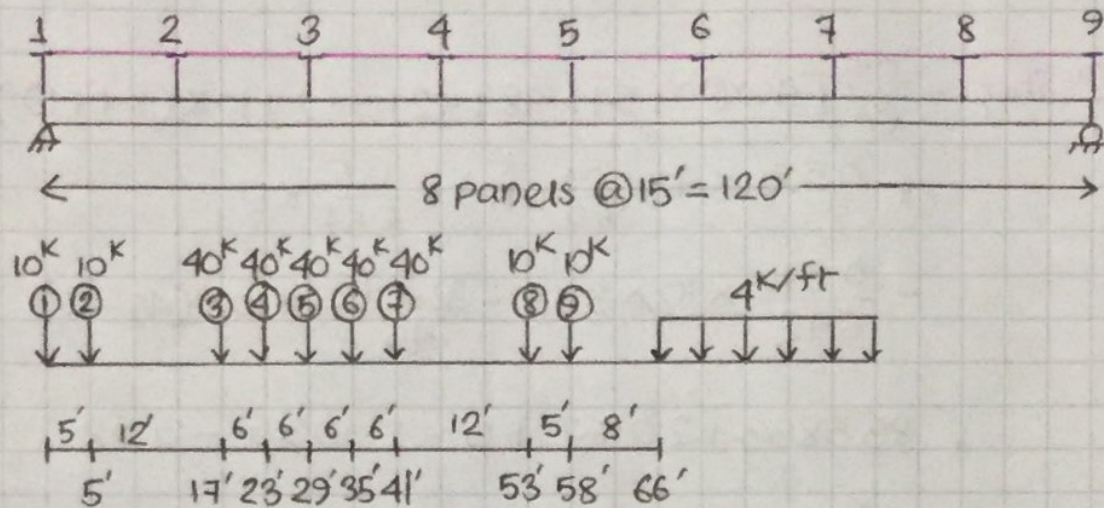 1 2 3 4 5 6 7 8 9
8 panels @15'=120'
10K 10K 40K 40K 40K 40K 40K 10K 10K 4K/ft
① ② ③ ④ ⑤ ⑥ ⑦ ⑧ ⑨
5' 12' 6' 6' 6' 6' 12' 5' 8'
5' 17' 23' 29' 35' 41' 53' 58' 66'